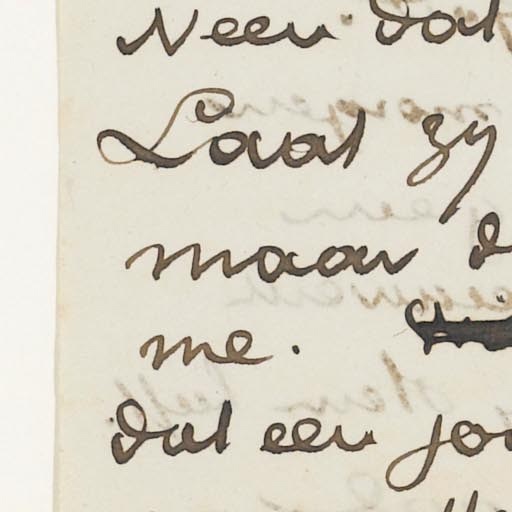 Neen dat
Laat zy
maar d
me.
dat een jo